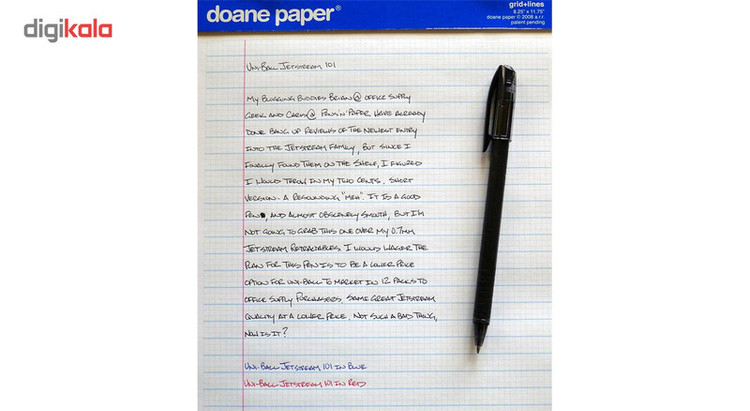 digikala
doane paper®
grid+lines
8.25" x 11.75"
doane paper © 2008 a.r.r.
patent pending
UNI-BALL JETSTREAM 101
MY BLOGGING BUDDIES BRIAN @ OFFICE SUPPLY
GEEK AND CARIS@ PENS'N'PAPER HAVE ALREADY
DONE BANG UP REVIEWS OF THE NEWEST ENTRY
INTO THE JETSTREAM FAMILY, BUT SINCE I
FINALLY FOUND THEM ON THE SHELF, I FIGURED
I WOULD THROW IN MY TWO CENTS. SHORT
VERSION - A RESOUNDING "MEH". IT IS A GOOD
PEN, AND ALMOST OBSCENELY SMOOTH, BUT I'M
NOT GOING TO GRAB THIS ONE OVER MY 0.7MM
JETSTREAM RETRACTABLES. I WOULD WAGER THE
PLAN FOR THIS PEN IS TO BE A LOWER PRICE
OPTION FOR UNI-BALL TO MARKET IN 12 PACKS TO
OFFICE SUPPLY PURCHASERS. SAME GREAT JETSTREAM
QUALITY AT A LOWER PRICE. NOT SUCH A BAD THING,
NOW IS IT?
UNI-BALL JETSTREAM 101 IN BLUE
UNI-BALL JETSTREAM 101 IN RED